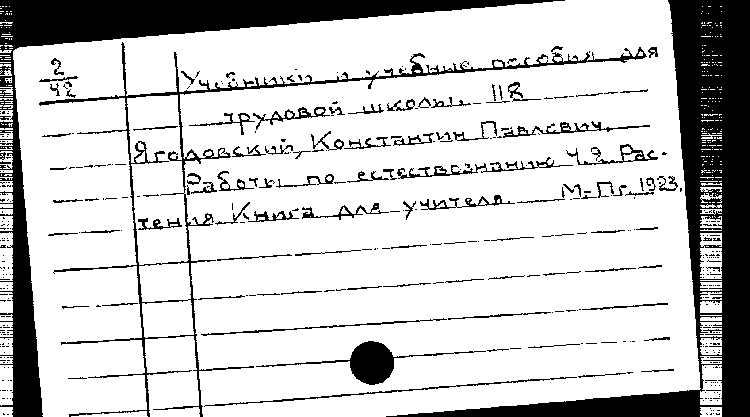 2
42
Учебники и учебные пособия для
трудовой школы. 118
Ягодовский, Константин Павлович.
Работы по естествознанию Ч.2. Рас-
тения. Книга для учителя. М.-Пг., 1923.